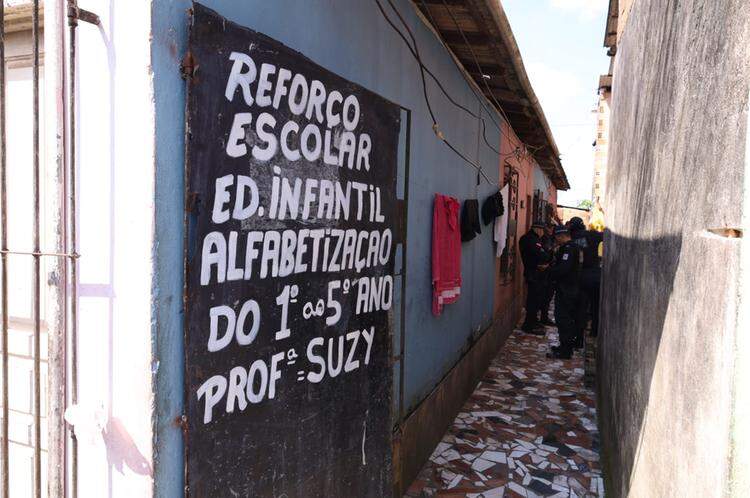 REFORÇO
ESCOLAR
ED. INFANTIL
ALFABETIZAÇÃO
DO 1º ao 5º ANO
PROFª = SUZY